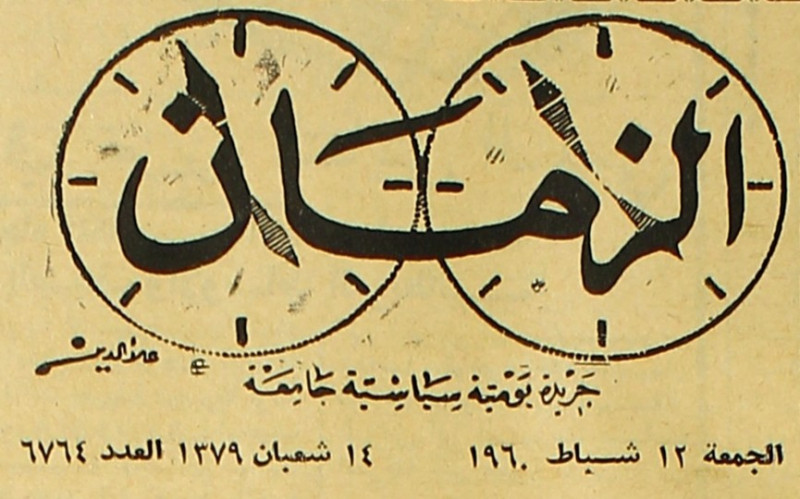 الزمان
علاءالدين
جريدة يومية سياسية جامعة
الجمعة ١٢ شباط ١٩٦٠ ١٤ شعبان ١٣٧٩ العدد ٦٧٦٤